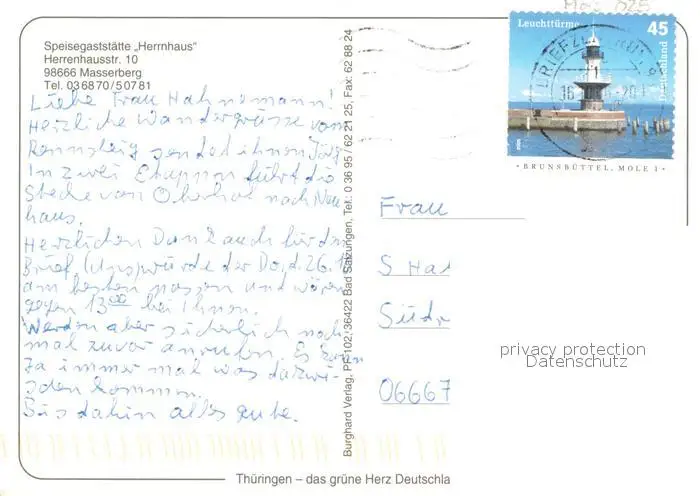 Speisegaststätte „Herrnhaus"
Herrenhausstr. 10
98666 Masserberg
Tel. 036870/50781
Liebe Frau Hahnemann!
Herzliche Wandergrüsse vom
Rennsteig sendet ihnen Jörg
In zwei Etappen führt die
Strecke von Oberhof nach Neu
haus.
Herzlichen Dank auch für den
Brief. (Uns) würde der Do, d. 26.
am besten passen und wären
gegen 13⁰⁰ bei Ihnen.
Werden aber sicherlich noch
mal zuvor anrufen. Es kann
Ja immer mal was dazwi-
schen kommen.
Bis dahin alles gute.
Burghard Verlag, PF 102, 36422 Bad Salzungen, Tel.: 0 36 95 / 62 21 25, Fax: 62 88 24
Leuchttürme
45
Deutschland
BRIEFZENTRUM
BRUNSBÜTTEL, MOLE 1
Frau
S Ha
Südr
06667
privacy protection
Datenschutz
Thüringen – das grüne Herz Deutschla